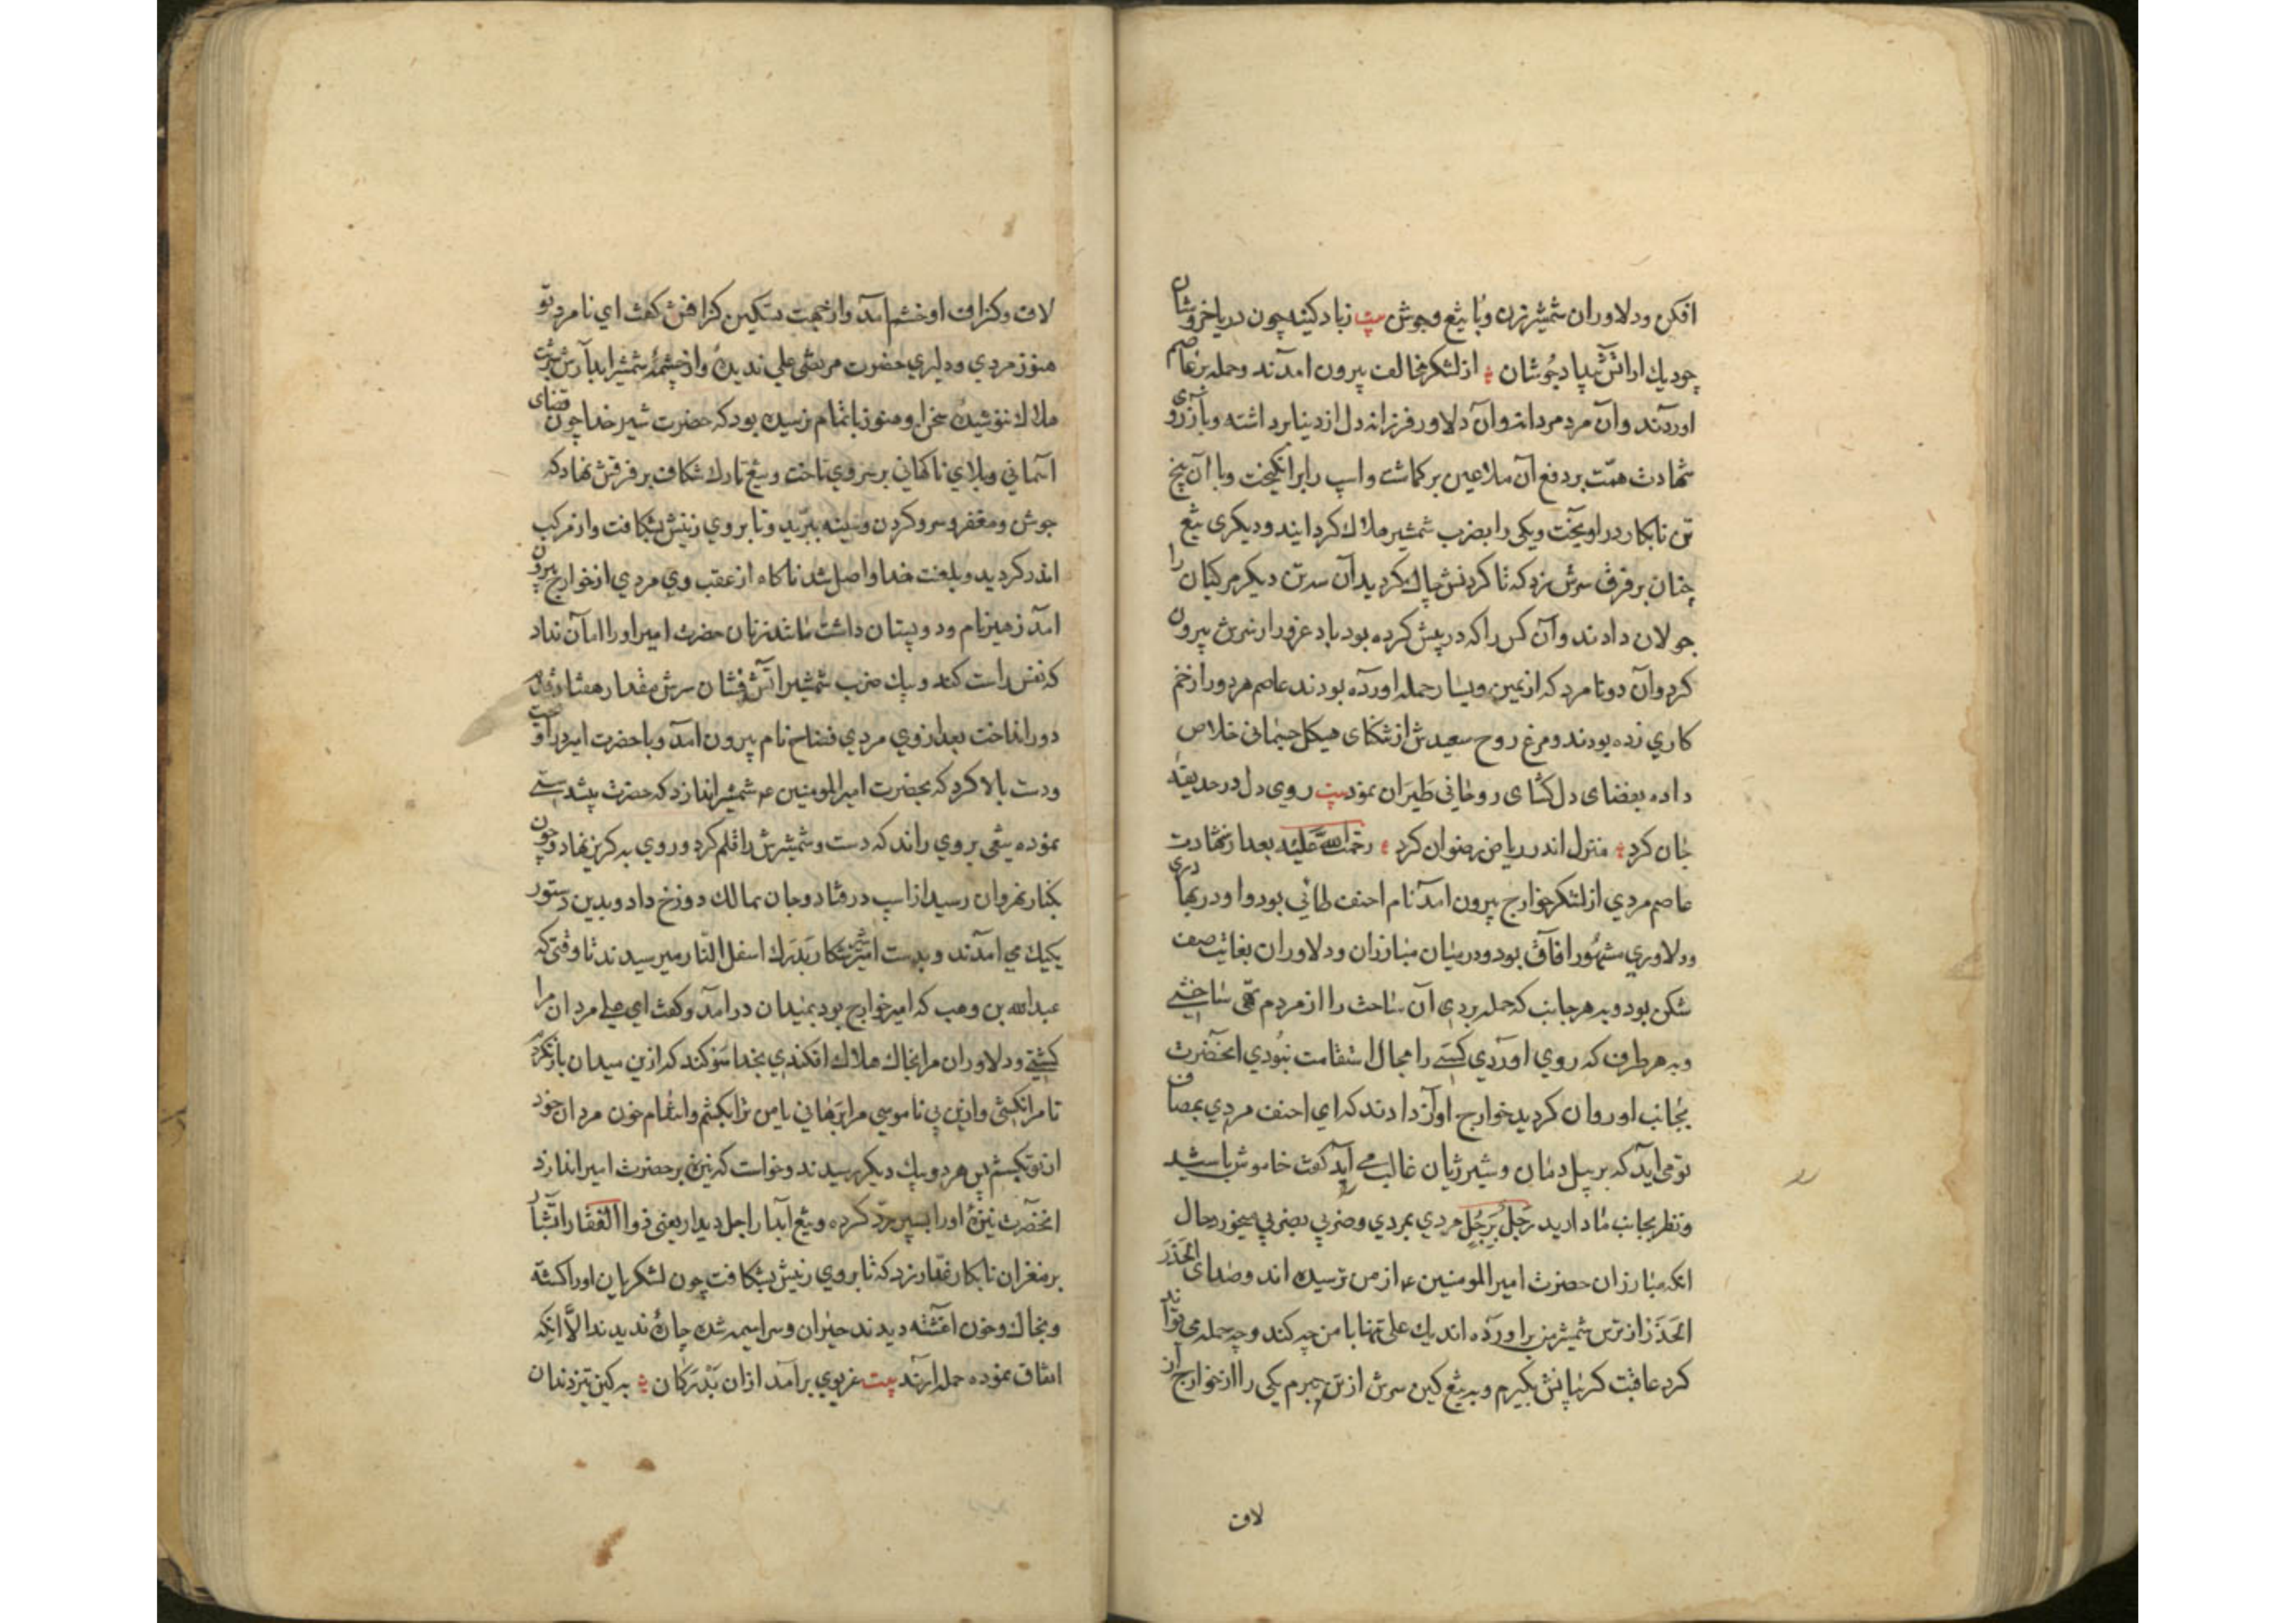 افکن ودلاوران شمشیرزن وبا تیغ وجوش بیت زباد کینه چون دریا خروشان
چو دیك از اتش بیداد جوشان از لشکر مخالف بیرون امدند وحمله بر عاصم
اوردند وآن مرد مردانه وآن دلاور فرزانه دل از دنیا برداشته وبآرزوی
شهادت همت بر دفع آن ملاعین برکماشت واسپ را برانکیخت وبا آن پنج
تن نابکار دراویخت ویکی را بضرب شمشیر هلاك کردانید ودیکری تیغ
چنان بر فرق سرش زد که تا کردنش چاك کردید آن سه تن دیکر مرکبان را
جولان دادند وآن کس را که در پیش کرده بود باد غرور از سرش بیرون
کرد وآن دو نامرد که از یمین ویسار حمله اورده بودند عاصم هر دو را زخم
کاري زده بودند ومرغ روح سعیدش از تنکنای هیکل جسمانی خلاص
داده بفضای دل کشای روحانی طیران نمود بیت روی دل در حدیقه
جان کرد منزل اندر ریاض رضوان کرد رحمت الله علیه بعد از شهادت
عاصم مردي از لشکر خوارج بیرون امد نام احنف طائي بود واو در بهادری
ودلاوري مشهور افاق بود ودر میان مبارزان ودلاوران بغایت صف
شکن بود وبه هر جانب که حمله بردي آن ساحت را از مردم تهی ساختی
وبه هر طرف که روي اوردي کسی را مجال استقامت نبودي انحضرت
بجانب او روان کردید خوارج اواز دادند که اي احنف مردي بمصاف
تو می اید که بر پیل دمان وشیر ژیان غالب می آید کفت خاموش باشید
ونظر بجانب ما دارید رجل برجل مردي بمردي وضربي بضربي میخورد حال
انکه مبارزان حضرت امیرالمومنین ع از من ترسیده اند وصدای الحذر
الحذر از ترس شمشیر من براورده اند یك علی تنها با من چه کند وچه حمله می تواند
کرد عاقبت کریبانش بکیرم وبه تیغ کین سرش از تن ببرم یکی را از خوارج از
لاف
لاف وکزاف او خشم امد واز جهت تسکین کزافش کفت اي نامرد تو
هنوز مردي ودلیري حضرت مرتضی علي ندیدهٔ واز چشمهٔ شمشیر ابدارش شربت
هلاك ننوشیدهٔ سخن او هنوز باتمام نرسیده بود که حضرت شیر خدا چون قضای
اسماني وبلاي ناکهاني بر سر وي تاخت وتیغ تارك شکاف بر فرقش نهاد که
جوش ومغفر وسر وکردن وسینه ببرید وتا بروي زینش بشکافت واز مرکب
اندر کردید وبلعنت خدا واصل شد ناکاه از عقب وي مردي از خوارج بیرون
امد زهیر نام ودو پستان داشت مانند زنان حضرت امیر او را امان نداد
که نفس راست کند وبیك ضرب شمشیر اتش فشان سرش مقدار هفتاد قدم
دور انداخت بعد از وي مردي فضاح نام بیرون امد وبا حضرت امیر دراویخت
ودست بالا کرد که بحضرت امیرالمومنین ع شمشیر اندازد که حضرت پیشدستی
نموده تیغی بر وي راند که دست وشمشیرش را قلم کرد وروي به کریز نهاد وچون
بکنار نهروان رسید از اسپ درفتاد وجان بمالك دوزخ داد وبدین دستور
یکیك مي امدند وبدست امیر شیر شکار بدرك اسفل النار میرسیدند تا وقتی که
عبدالله بن وهب که امیر خوارج بود بمیدان درامد وکفت اي علی مردان مرا
کشتي ودلاوران مرا بخاك هلاك افکندي بخدا سوکند که ازین میدان بازنکردم
تا مرا نکشي وازین بي ناموسي مرا برهاني یا من ترا بکشم وانتقام خون مردان خود
از تو بکشم پس هر دو بیك دیکر رسیدند وخواست که نیزه بر حضرت امیر اندازد
انحضرت نیزهٔ او را بسپر رد کرده وتیغ ابدار اجل دیدار یعنی ذوالفقار را تشبار
بر مغز ان نابکار غدار زد که تا بروي زینش بشکافت چون لشکریان او را کشته
وبخاك وخون اغشته دیدند حیران وسراسیمه شده چارهٔ ندیدند الا آنکه
اتفاق نموده حمله ارند بیت غریوي برامد ازان بدرکان به کین تیز دندان